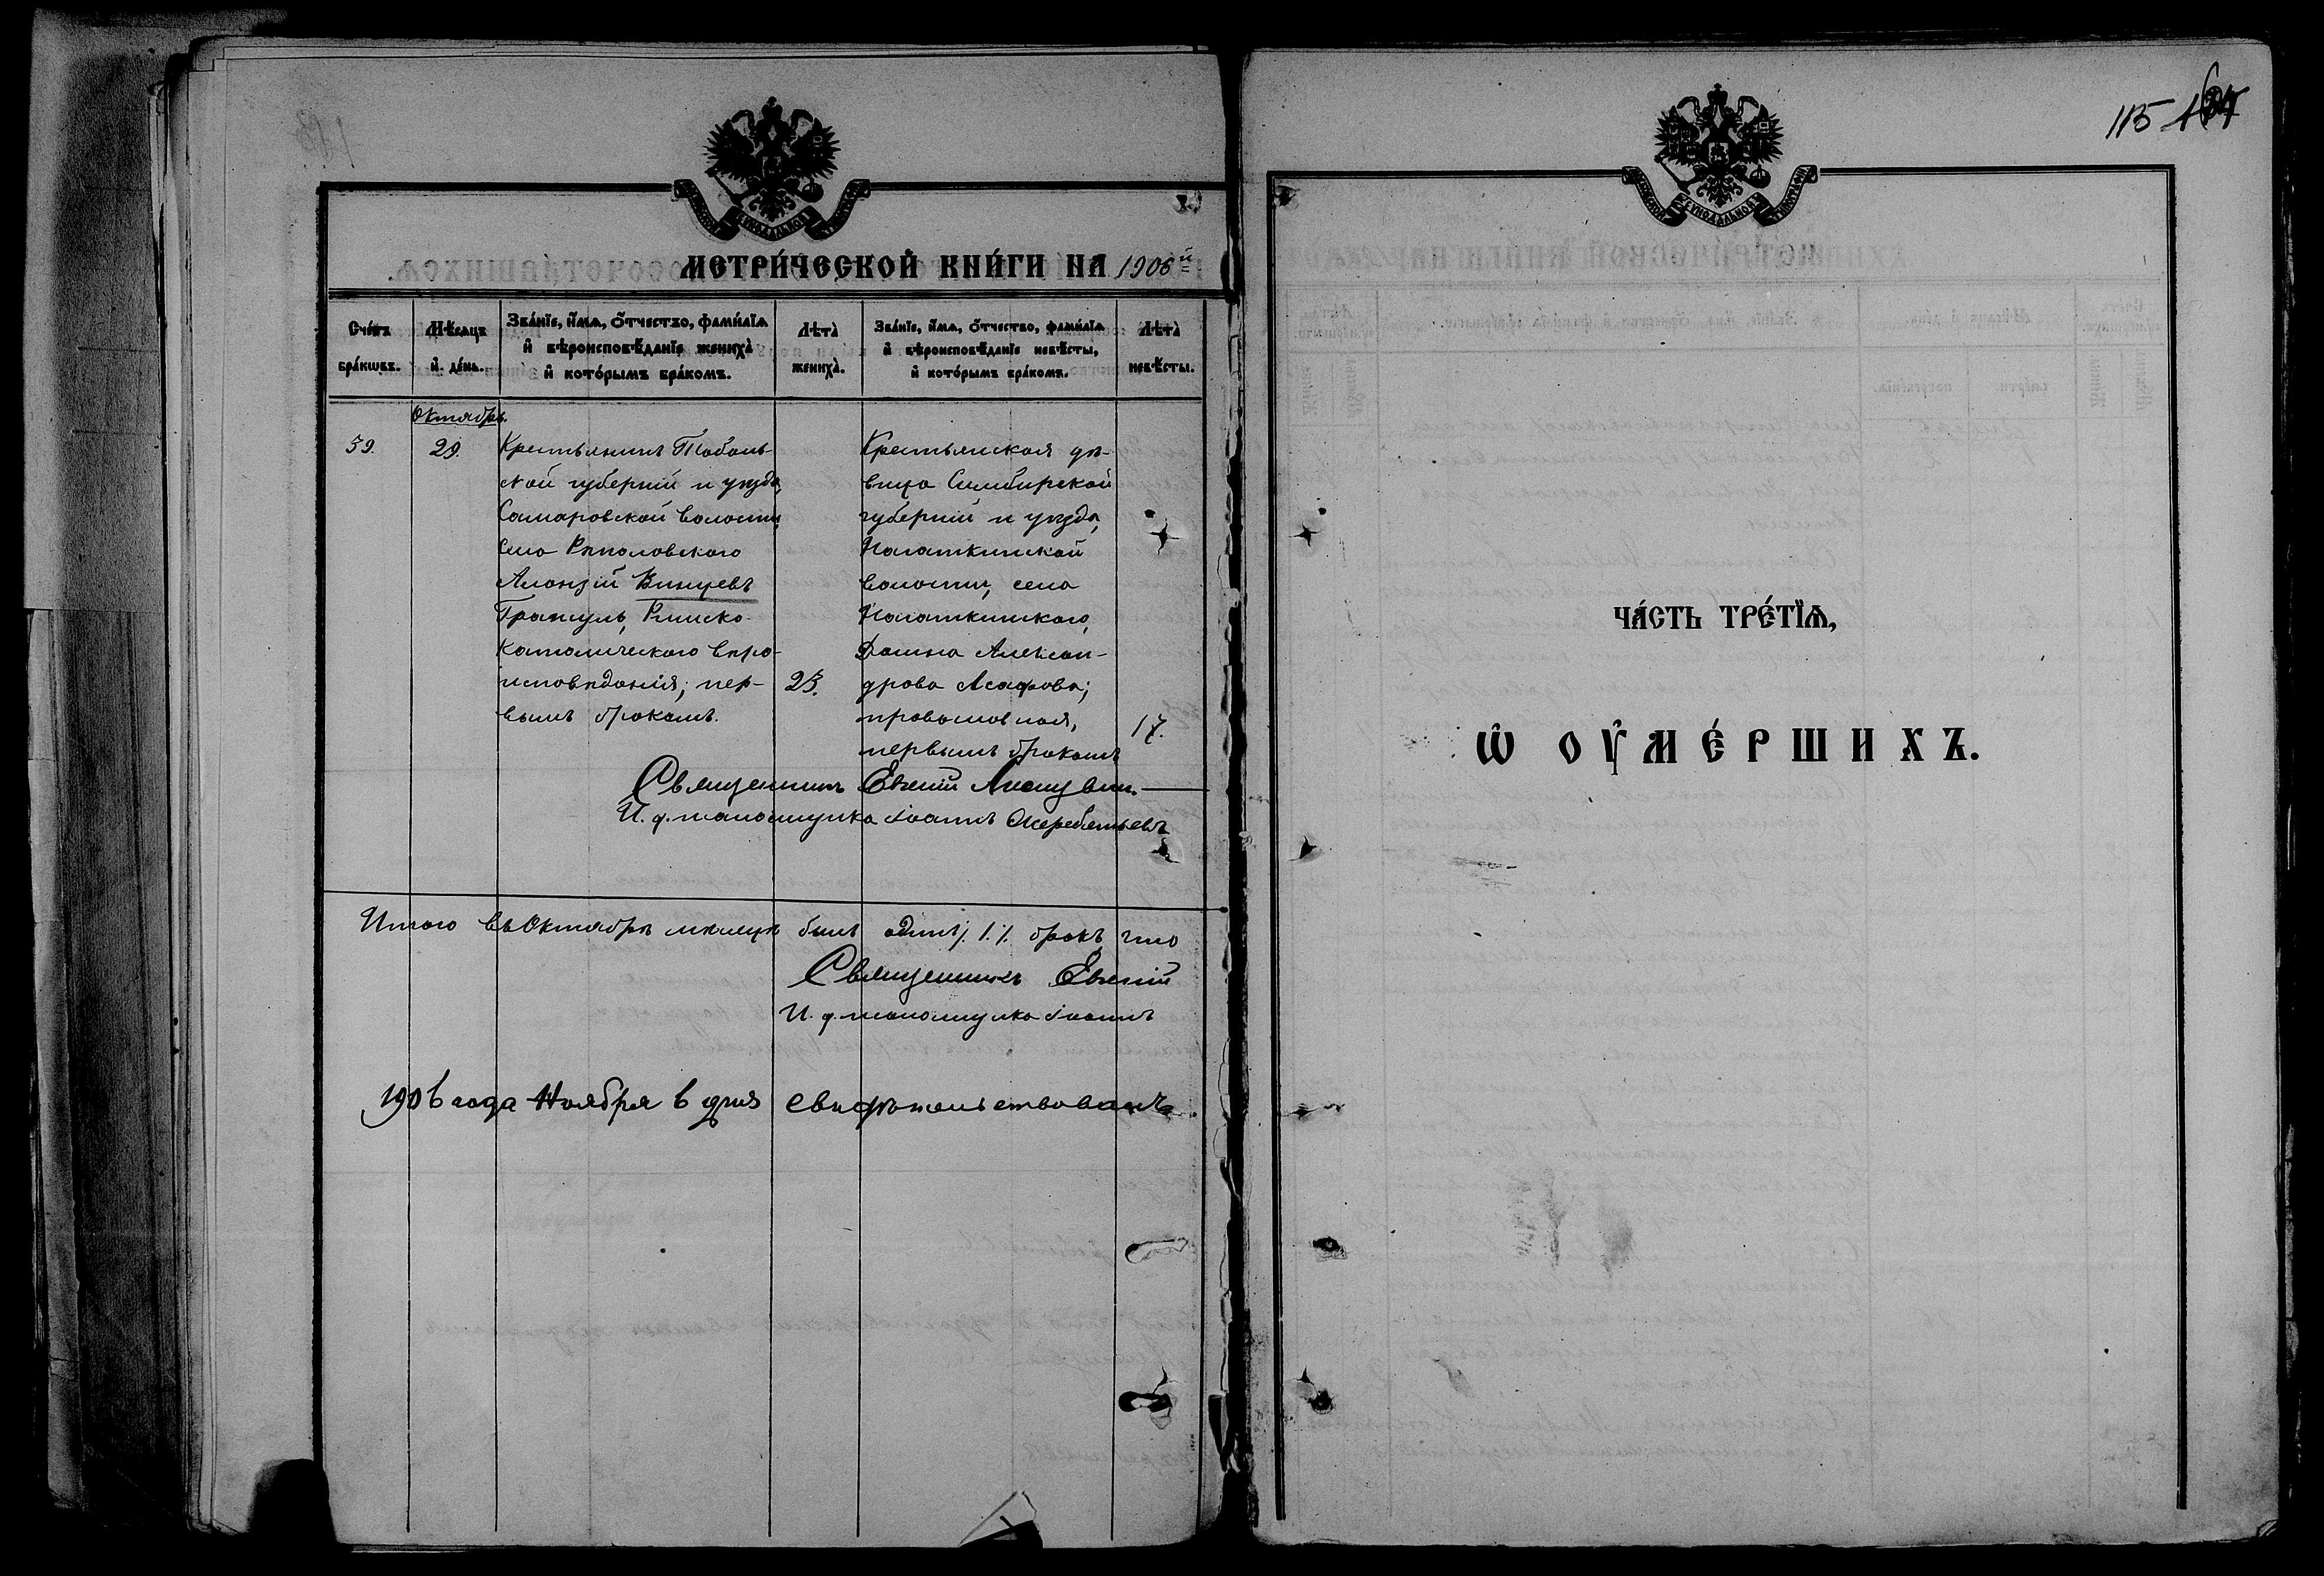 МЕТРИ́ЧЕСКОЙ КНИ́ГИ НА 1906й
Сче́тъ бра́кωвъ.
Мѣ́сяцъ и҆ де́нь.
Зва́нїе, и҆́мя, ѻ҆́тчество, фами́лїя и҆ вѣроисповѣ́данїе женихà и҆ кото́рымъ бра́комъ.
Лѣтà женихà.
Зва́нїе, и҆́мя, ѻ҆́тчество, фами́лїя и҆ вѣроисповѣ́данїе невѣ́сты, и҆ кото́рымъ бра́комъ.
Лѣтà невѣ́сты.
Октябрь.
59.
29.
Крестьянинъ Тоболь-
ской губерніи и уѣзда,
Самаровской волости,
села Реполовского
Алоизій Винцевъ
Гражуль, Римско-
католическаго вѣро-
исповѣданія; пер-
вымъ бракомъ.
25.
Крестьянская дѣ-
вица Симбирской
губерніи и уѣзда,
Ногаткинской
волости, села
Ногаткинскаго,
Домна Алексан-
дрова Асафова;
православная,
первымъ бракомъ
17.
Священникъ Евгеній
И. д. псаломщика Іоаннъ
Итого въ Октябрѣ мѣсяцѣ былъ одинъ /.1./. бракъ, что
Священникъ Евгеній
И. д. псаломщика Іоаннъ
1906 года Ноября 6 дня свидѣтельствовалъ
115
ЧА́СТЬ ТРЕ́ТЇѦ,
Ѽ ОУ҆МЕ́РШИХЪ.